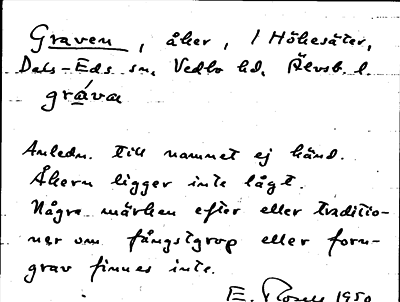 Graven, åker, 1 Hökesäter,
Dals-Eds sn, Vedbo hd, Älvsb. l.
gráva
Anledn. till namnet ej känd.
Åkern ligger inte lågt.
Några märken efter eller traditio-
ner om fångstgrop eller forn-
grav finnes inte.
E. 1950